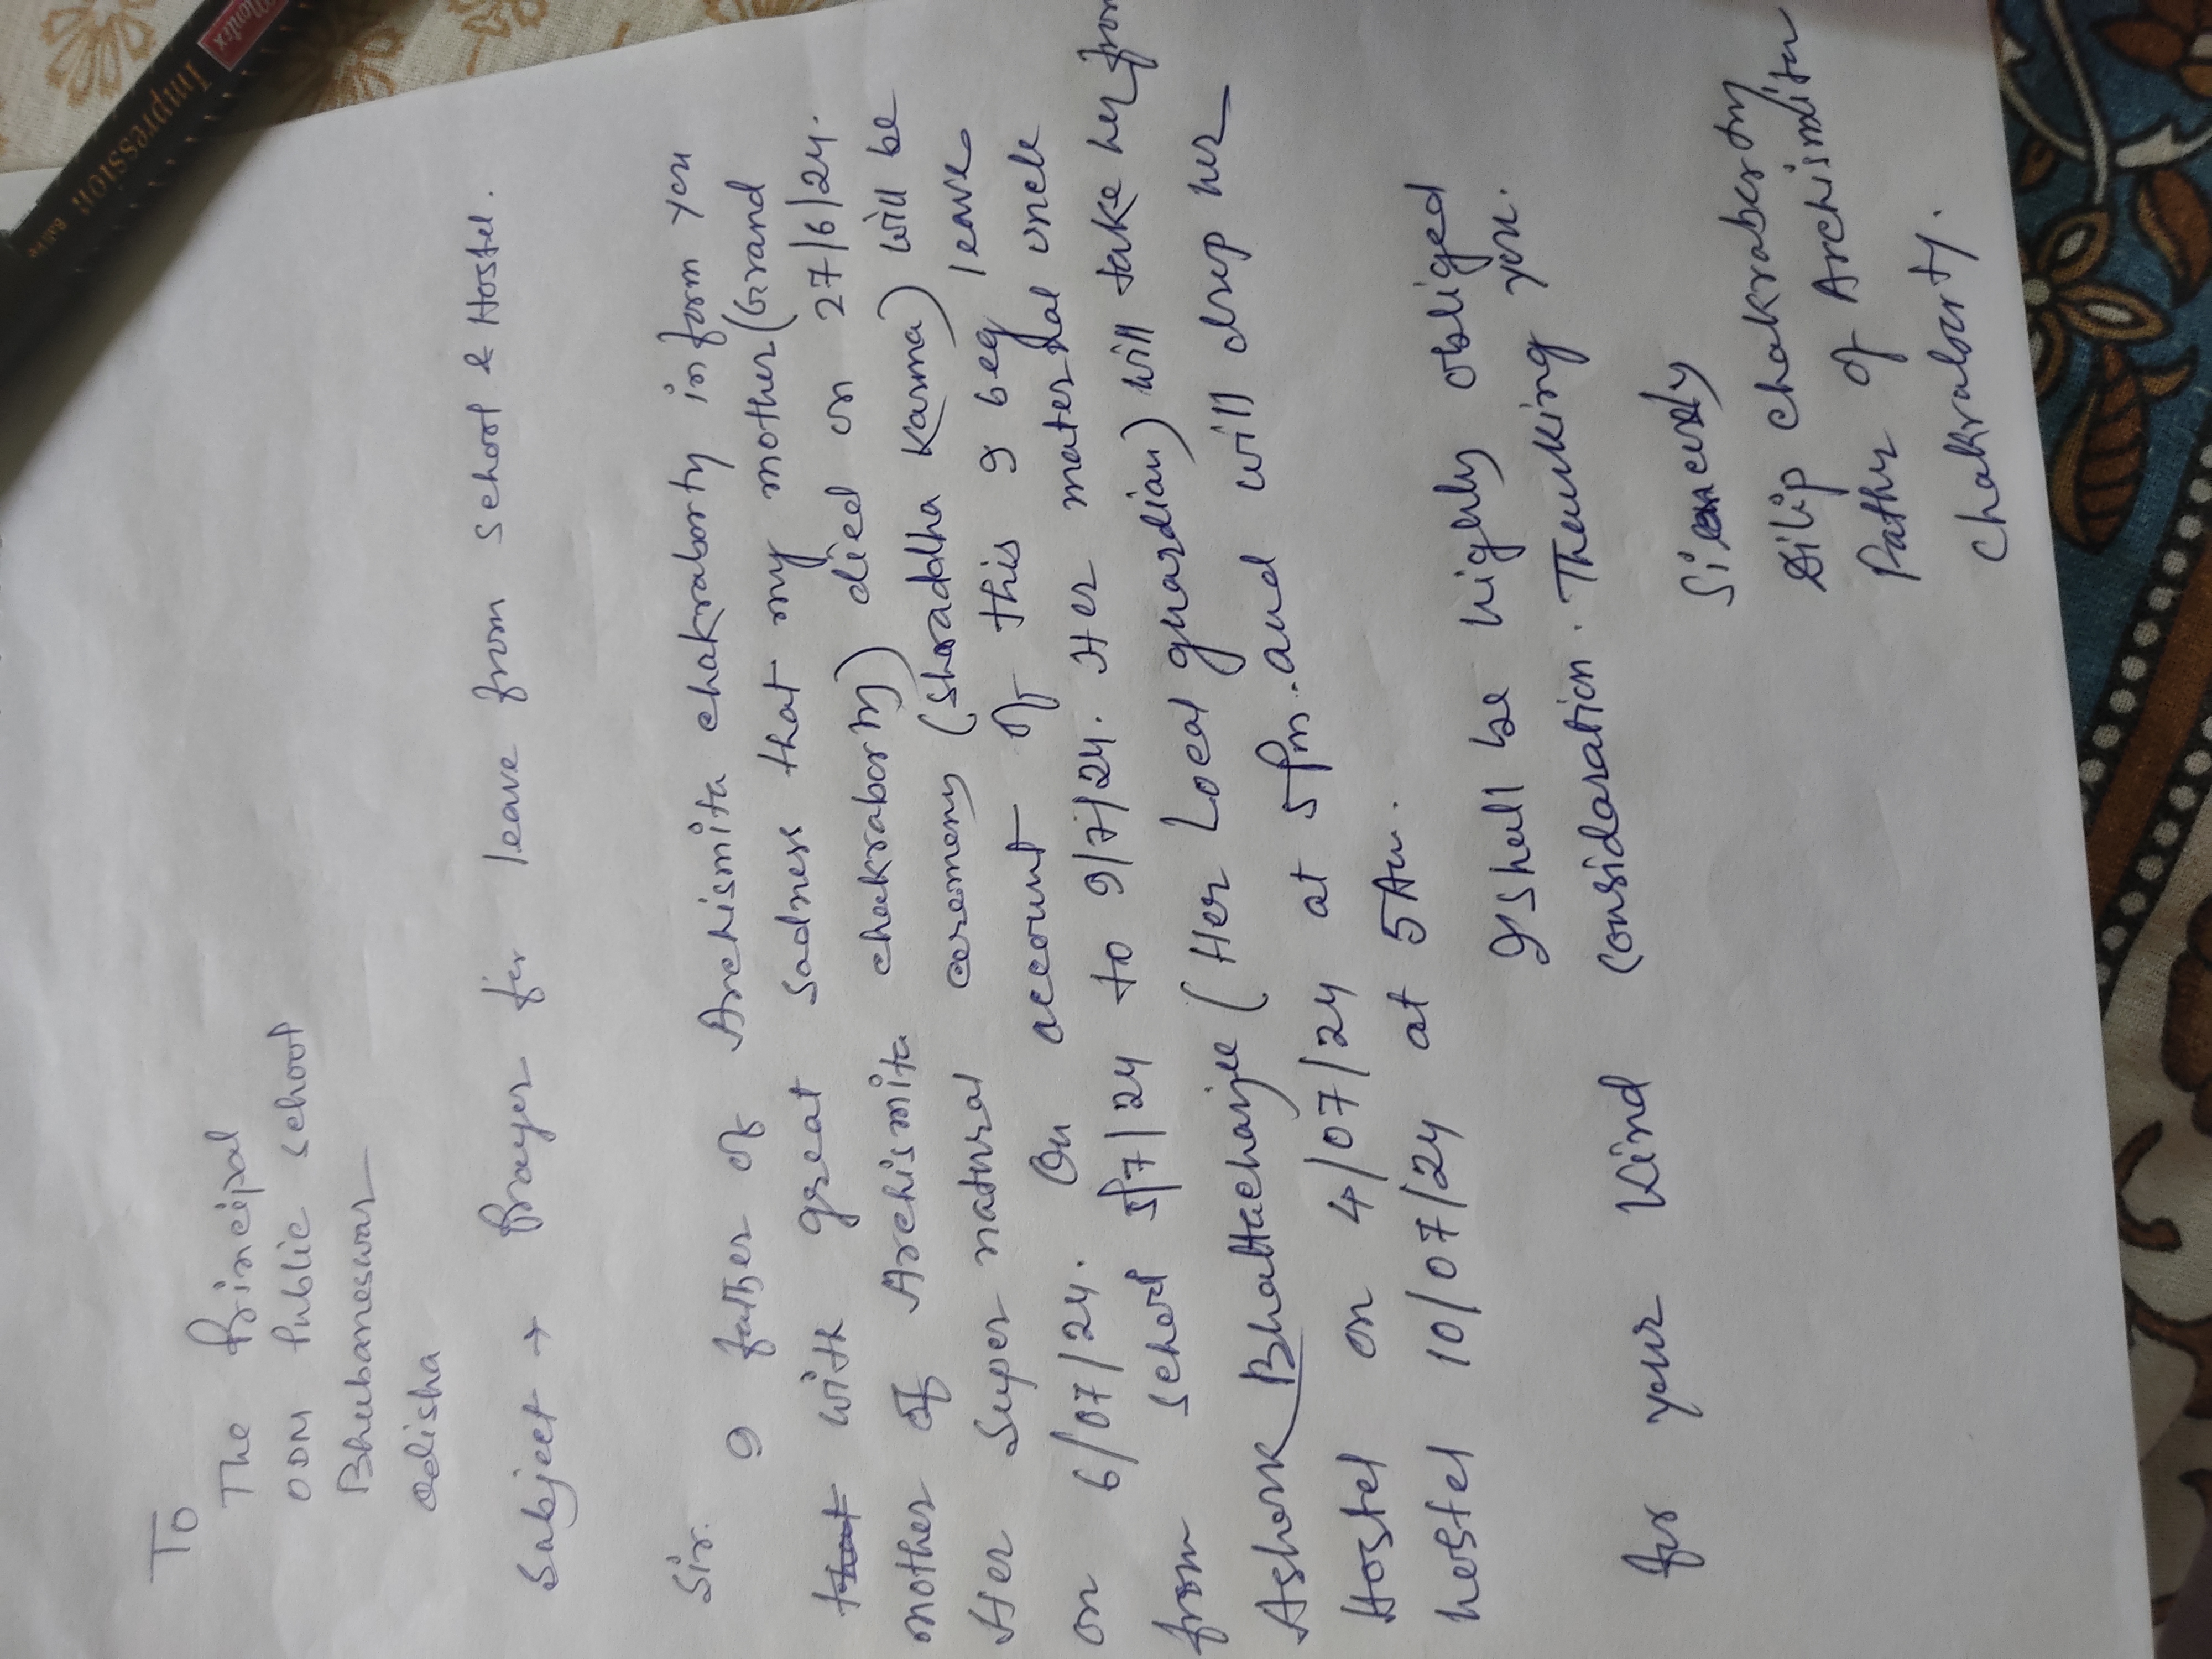 Montex
Impression
To
The Principal
ODM Public School
Bhubaneswar
Odisha
Subject → Prayer for leave from school & Hostel.
Sir. I father of Archismita chakraborty inform you
that with great sadness that my mother (Grand
mother of Archismita chakraborty) died on 27/6/24.
Her Super natural ceremony (Shraddha Karma) will be
on 6/07/24. On account of this I beg leave
from school 5/7/24 to 9/7/24. Her maternal uncle
Ashok Bhattacharjee (Her Local guardian) will take her from
Hostel on 4/07/24 at 5 Pm. and will drop her
hostel 10/07/24 at 5 Am.
I shall be highly obliged
for your kind considaration. Thanking you.
Sincerely
Dilip chakraborty
Father of Archismita
Chakraborty.